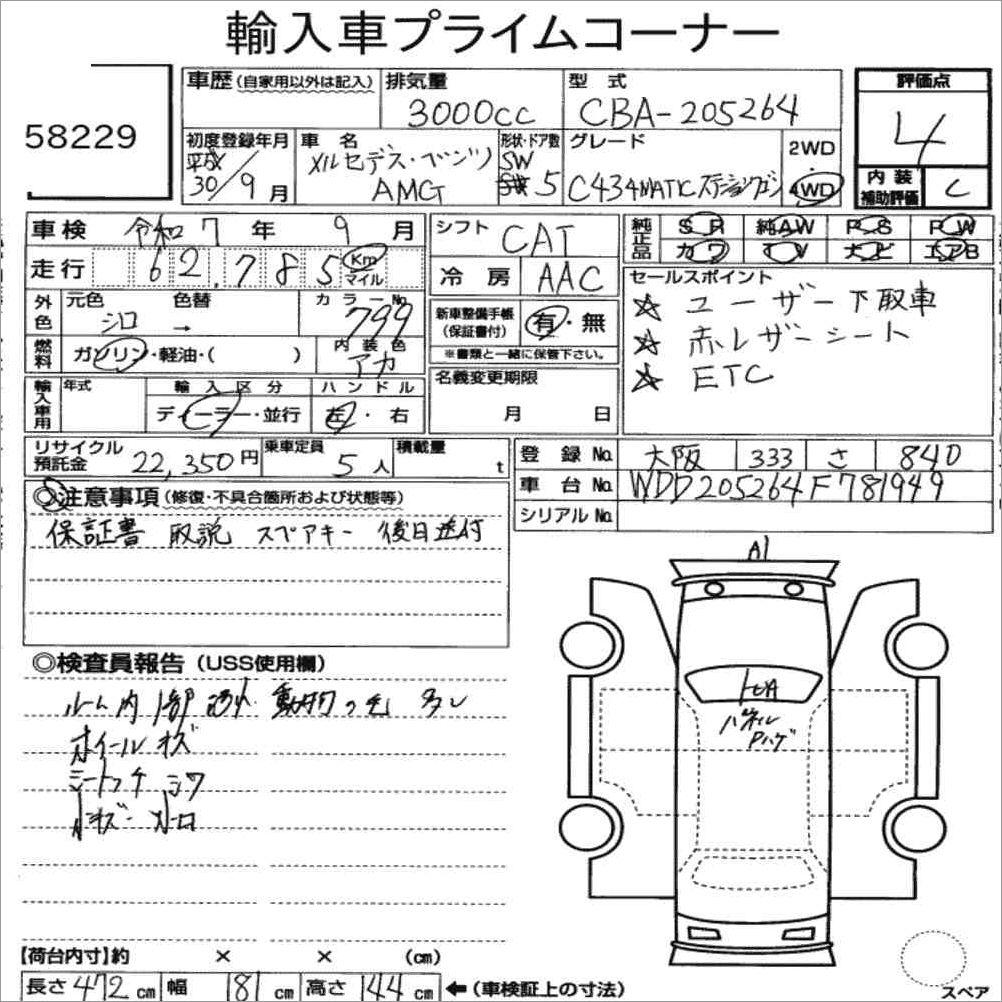 輸入車プライムコーナー
58229
車歴 (自家用以外は記入)
排気量
3000cc
型式
CBA-205264
評価点
4
内装補助評価
C
初度登録年月
平成
30/9月
車名
メルセデス・ベンツ
AMG
形状・ドア数
SW
5
グレード
C434MATICステーションワゴン
2WD
・
4WD
車検 令和7年 9月
走行 62,785 Km マイル
シフト CAT
冷房 AAC
純正品
SR 純AW PS PW
カワ TV ナビ エアB
外色
元色 シロ
色替 →
カラーNo. 799
燃料
ガソリン・軽油・( )
内装色
アカ
新車整備手帳
(保証書付)
有・無
※書類と一緒に保管下さい。
セールスポイント
☆ ユーザー下取車
☆ 赤レザーシート
☆ ETC
輸入車用
年式
輸入区分
ディーラー・並行
ハンドル
左・右
名義変更期限
月 日
リサイクル預託金 22,350円
乗車定員 5人
積載量 t
登録No. 大阪 333 さ 840
車台No. WDD205264F781949
シリアルNo.
◎注意事項 (修復・不具合箇所および状態等)
保証書 取説 スペアキー 後日送付
◎検査員報告 (USS使用欄)
ルーム内 動物の毛 多し
ホイール キズ
シワ
A1
パネル
Pハゲ
【荷台内寸】約 × × (cm)
長さ 472 cm 幅 181 cm 高さ 144 cm ←(車検証上の寸法)
スペア